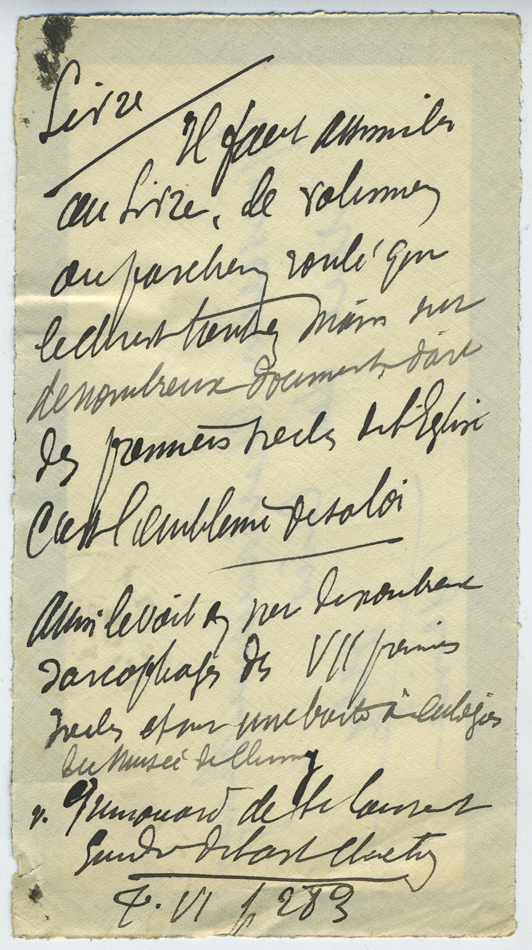 Livre
Il faut assimiler
au Livre, le volumen
ou parchemin roulé que
le Christ tient en main sur
de nombreux documents d'art
des premiers siècles de l'Eglise
C'est l'emblème de sa loi
Ainsi le voit on sur de nombreux
sarcophages des VII premiers
siècles et sur une boite à eulogies
du Musée de Cluny
v. Grimouard de St Laurent
Guide de l'art Chrétien
T. VI p 283